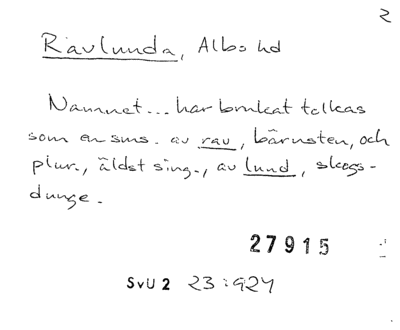 2
Ravlunda, Albo hd
Namnet... har brukat tolkas
som en sms. av rav, bärnsten, och
plur., äldst sing., av lund, skogs-
dunge.
27915
SvU 2 23:924